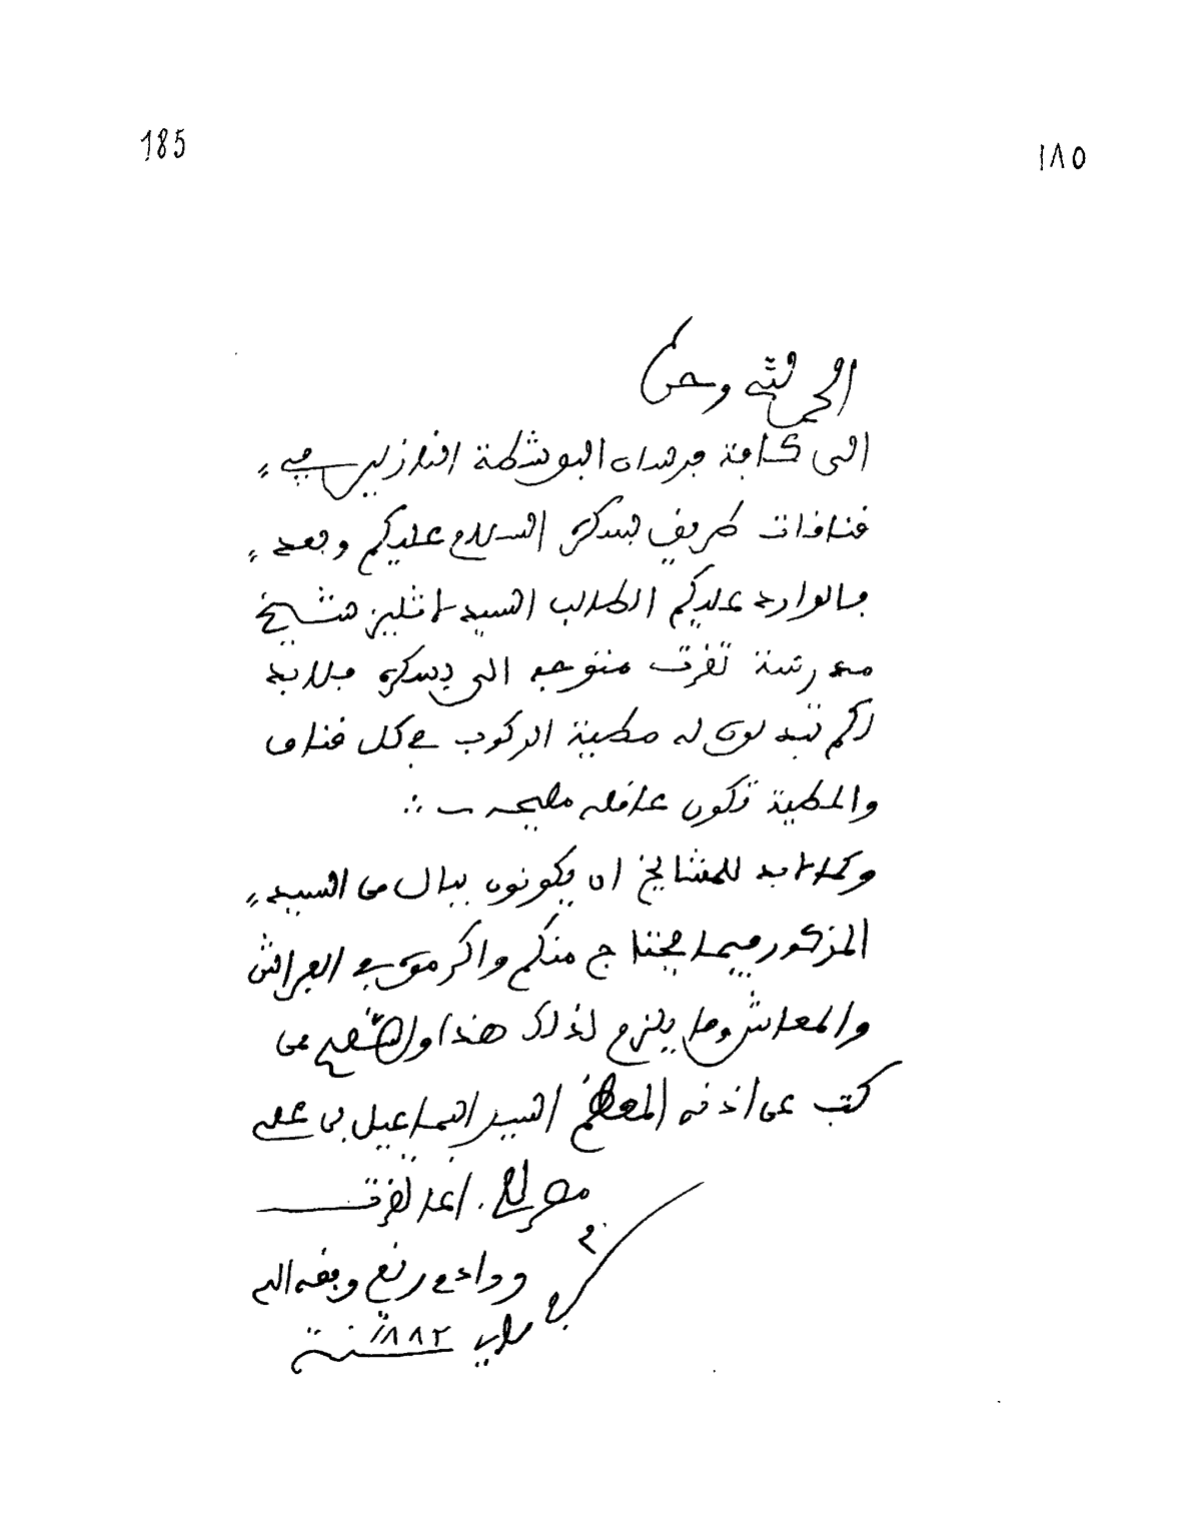 185
١٨٥
الحمد لله وحده
الى كافة فرسان البوشطة النازلين في
قنافات طريف بسكره السلام عليكم وبعد
فالوارد عليكم الطالب السيد منشيخ
مدرسة تقرت متوجه الى بسكره فلابد
لكم تبدلون له مطية الركوب في كل قناف
والمطية تكون عاقله مليحه
وكذا لابد للمشايخ ان يكونون ببال من السيد
المذكور فيما يحتاج منكم واكرموه في الفراش
والمعاش وما يلزم لذلك هذا والسلام من
كتب عن اذنه المعظم السيد اسماعيل بن علي
اغا تقرت
ووادي ريغ وفقه الله
في
ماي سنة ١٨٨٢